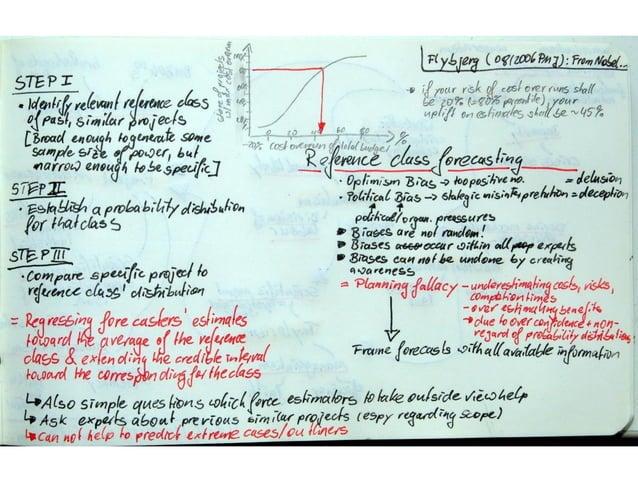 STEP I
• Identify relevant reference class
of past, similar projects
[Broad enough to generate some
sample size of power, but
narrow enough to be specific]
STEP II
• Establish a probability distribution
for that class
STEP III
• Compare specific project to
reference class' distribution
= Regressing forecasters' estimates
toward the average of the reference
class & extending the credible interval
toward the corresponding for the class
↳ Also simple questions which force estimators to take outside view help
↳ Ask experts about previous similar projects (espy regarding scope)
↳ can not help to predict extreme cases/outliners
share of projects
w/ max cost overrun
-20% 0 20 40 60 80 > %
cost overrun of total budget
Flybjerg (08/2006 PMJ): From Nobel...
• if your risk of cost overruns shall
be 20% (=80% percentile), your
uplift on estimates shall be ~45%
Reference class forecasting
• Optimism Bias → too positive no. = delusion
• Political Bias → strategic misinterpretation = deception
political/organ. pressures
Biases are not random!
Biases occur within all experts
Biases can not be undone by creating
awareness
= Planning fallacy - underestimating costs, risks,
completion times
- over estimating benefits
→ due to over confidence + non-
regard of probability distributions
Frame forecasts with all available information